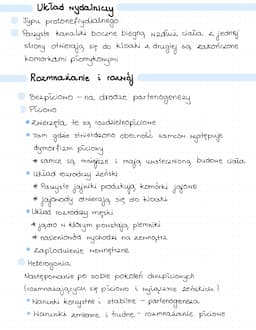 Układ wydalniczy
Typu protonefrydialnego
Parzyste kanaliki boczne biegną wzdłuż ciała z jednej
strony otwierają się do kloaki a drugiej są zakończone
komórkami płomykowymi
Rozmnażanie i rozwój
Bezpłciowo - na drodze partenogenezy
Płciowo
* Zwierzęta te są rozdzielnopłciowe
* Tam gdzie stwierdzono obecność samców występuje
dymorfizm płciowy
* samce są mniejsze i mają uwstecznioną budowę ciała
* Układ rozrodczy żeński
* Parzyste jajniki produkują komórki jajowe
* jajowody otwierają się do kloaki
* Układ rozrodczy męski
* jądro w którym powstają plemniki
* nasieniowód wychodzi na zewnątrz
* Zapłodnienie wewnętrzne
Heterogonia
Następowanie po sobie pokoleń dwupłciowych
(rozmnażających się płciowo i wyłącznie żeńskich)
* Warunki korzystne i stabilne - partenogeneza
* Warunki zmienne i trudne - rozmnażanie płciowe